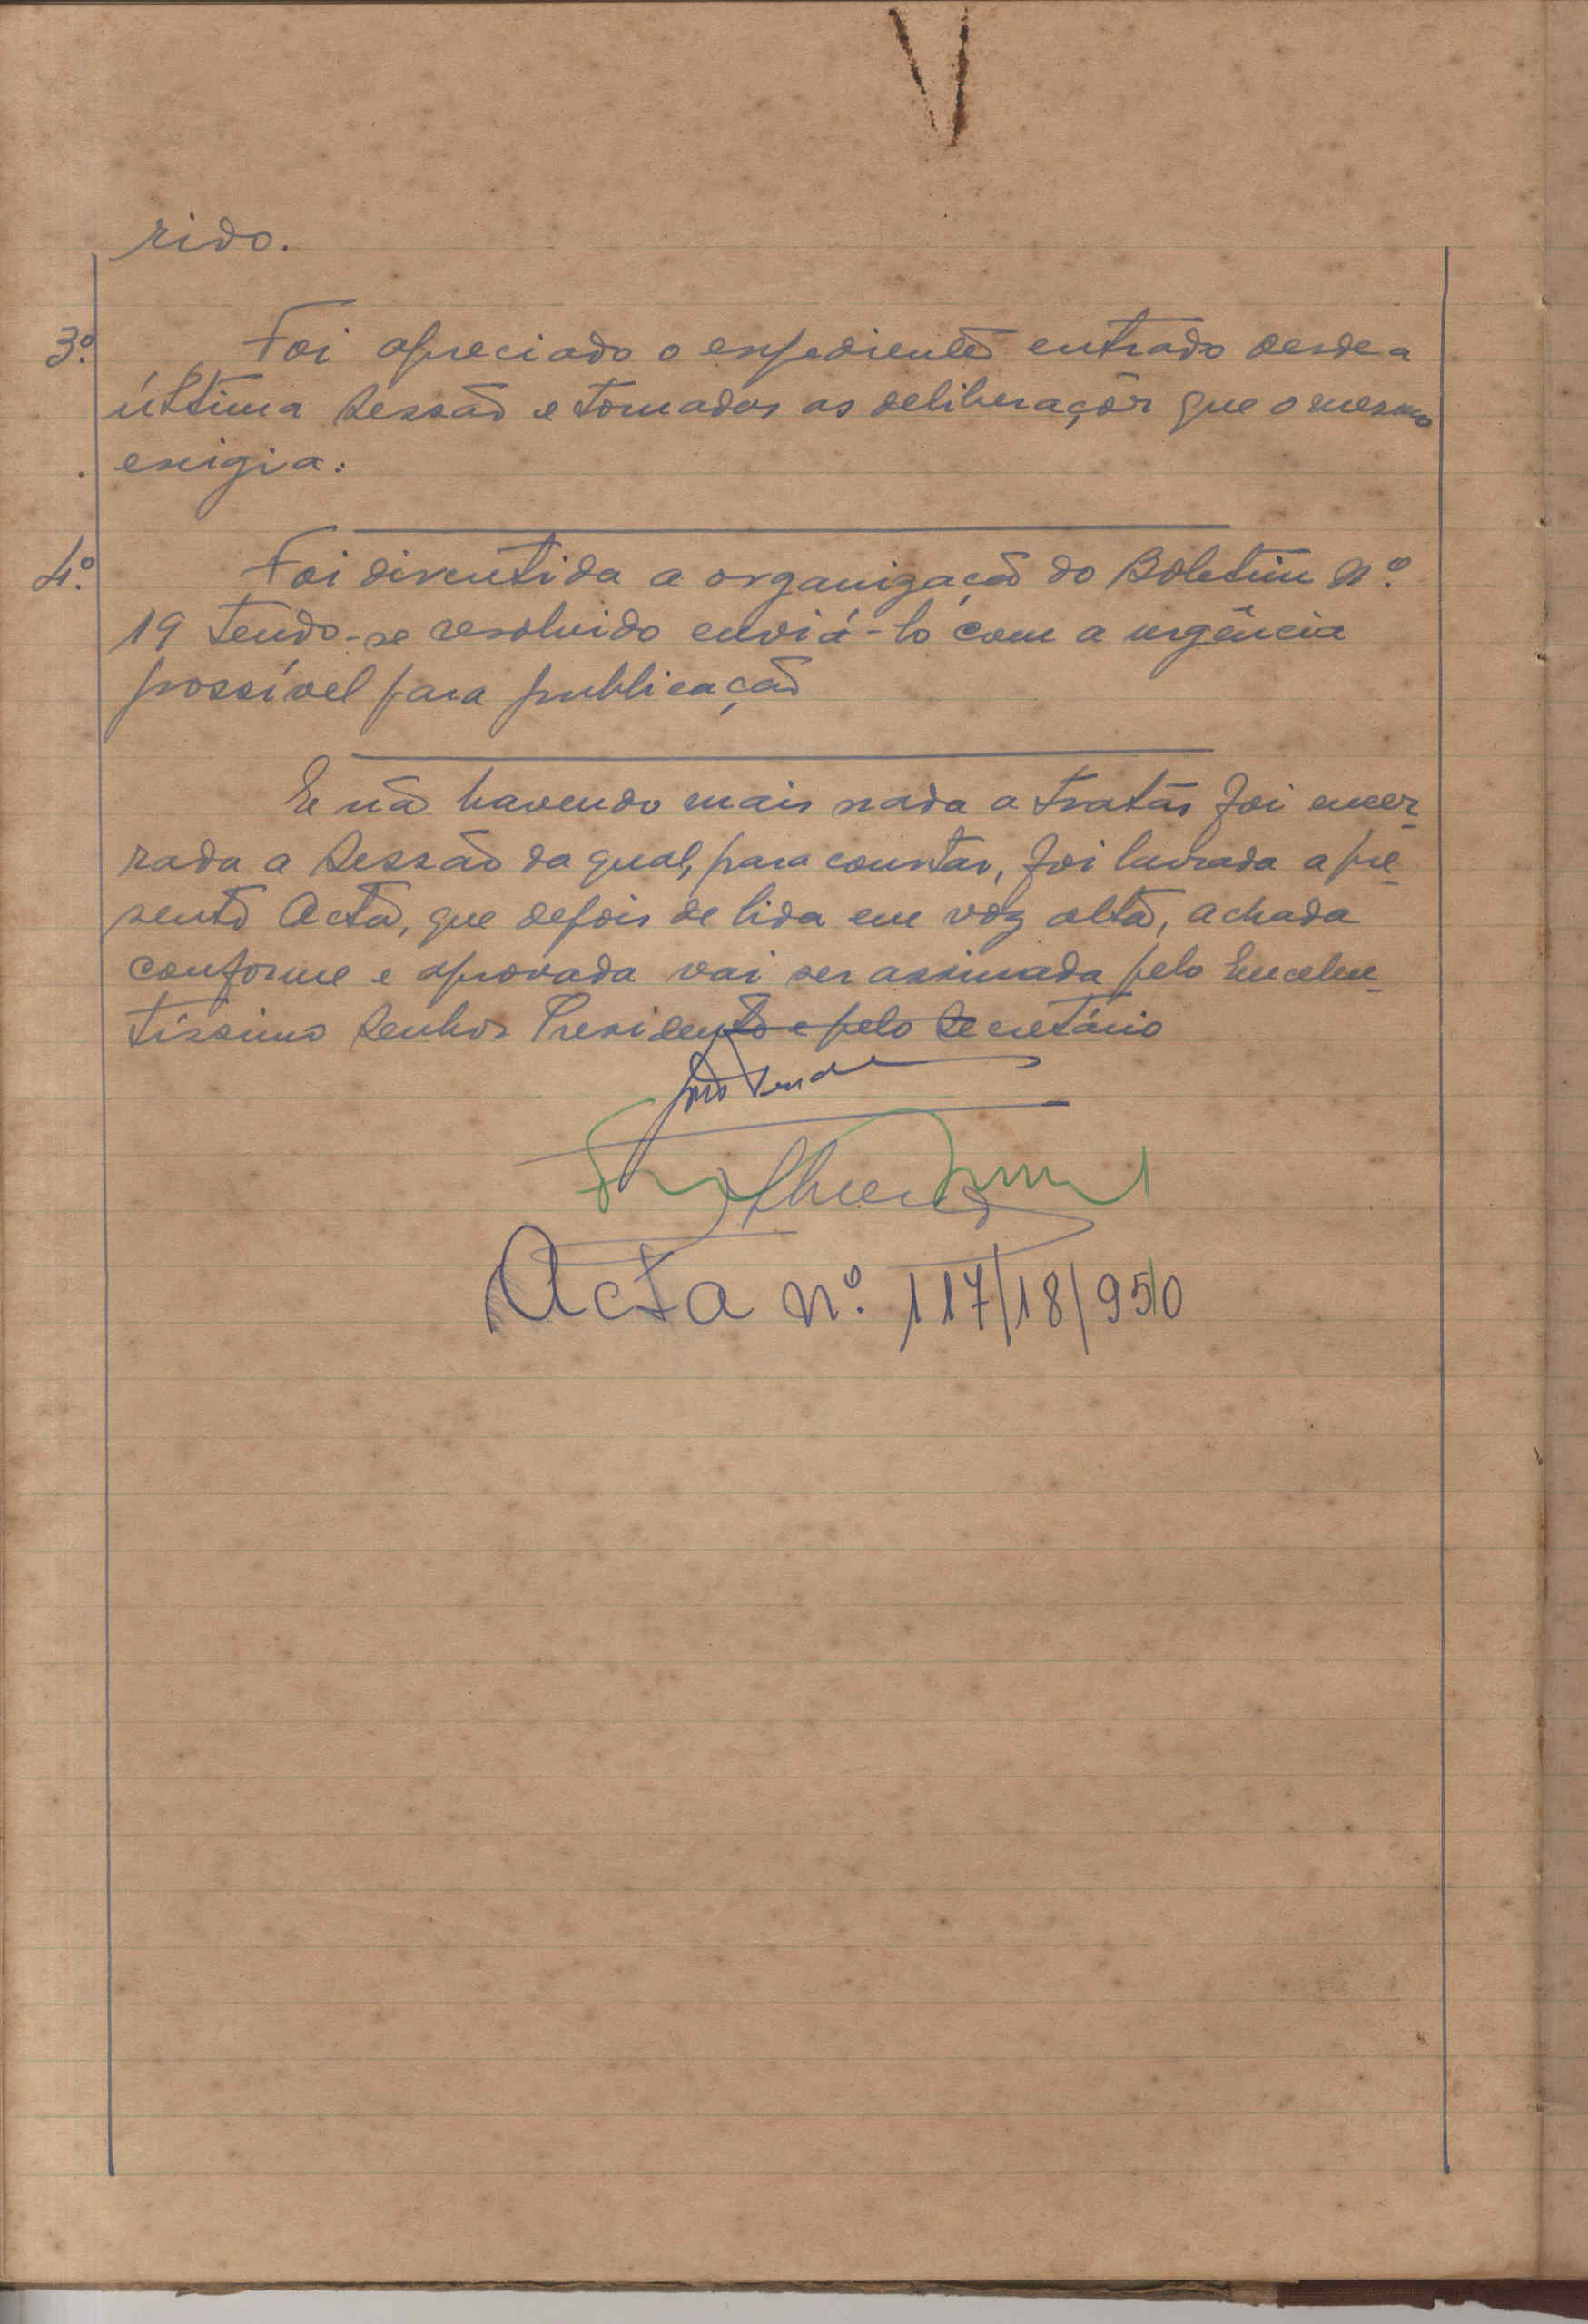 rido.
3º. Foi apreciado o expediente entrado desde a
última Sessão e tomadas as deliberações que o mesmo
exigia.
4º. Foi discutida a organização do Boletim Nº.
19 tendo-se resolvido enviá-lo com a urgência
possível para publicação
E não havendo mais nada a tratar foi encer-
rada a Sessão da qual, para constar, foi lavrada a pre-
sente Acta, que depois de lida em voz alta, achada
conforme e aprovada vai ser assinada pelo Excelen-
tíssimo Senhor Presidente e pelo Secretário
Acta nº. 117/18/950